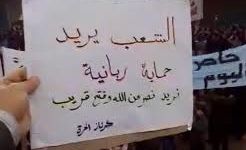 الشعب يريد
حماية ربانية
نريد نصر من الله وفتح قريب
حاصر
اليوم